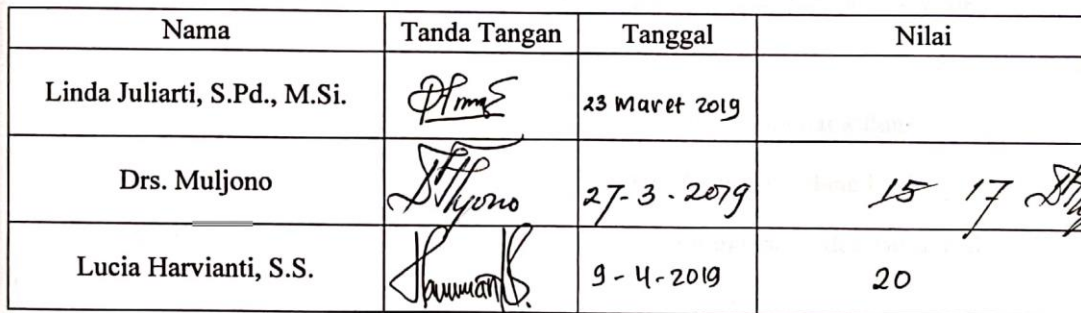 Nama Tanda Tangan Tanggal Nilai
Linda Juliarti, S.Pd., M.Si. 23 Maret 2019
Drs. Muljono 27-3-2019 15 17
Lucia Harvianti, S.S. 9-4-2019 20